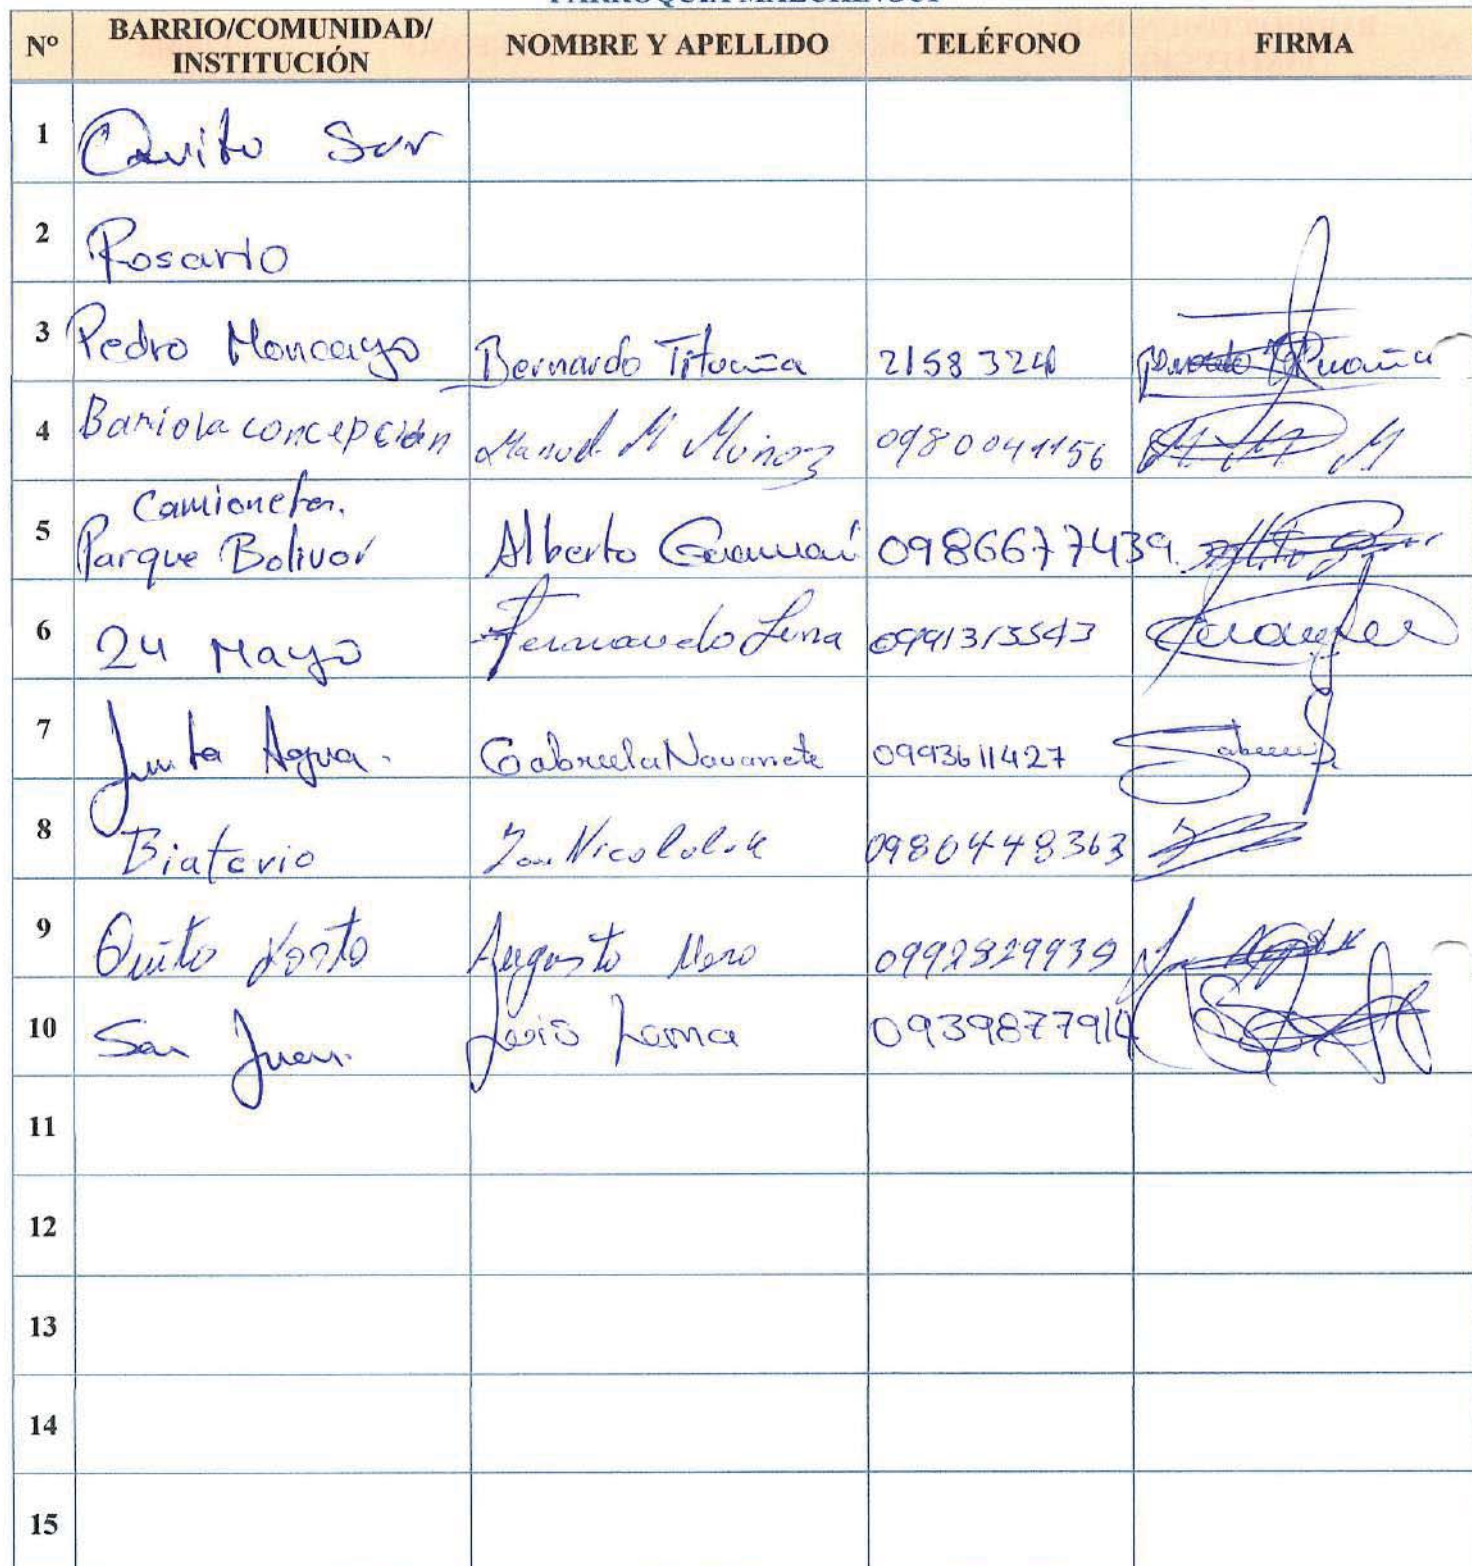 PARROQUIA MALCHINGUÍ
Nº BARRIO/COMUNIDAD/ INSTITUCIÓN NOMBRE Y APELLIDO TELÉFONO FIRMA
1 Quito Sur
2 Rosario
3 Pedro Moncayo Bernardo Tituaña 2158324
4 Bariola concepción Manuel M Muñoz 0980041156
Camionetas.
5 Parque Bolivar Alberto 0986677439
6 24 Mayo Fernando Luna 0991313543
7 Junta Agua. Gabriela Navarrete 0993611427
8 0980448363
9 Quito Norte Augusto 0992929939
10 San Juan. Luis Lema 0939877914
11
12
13
14
15